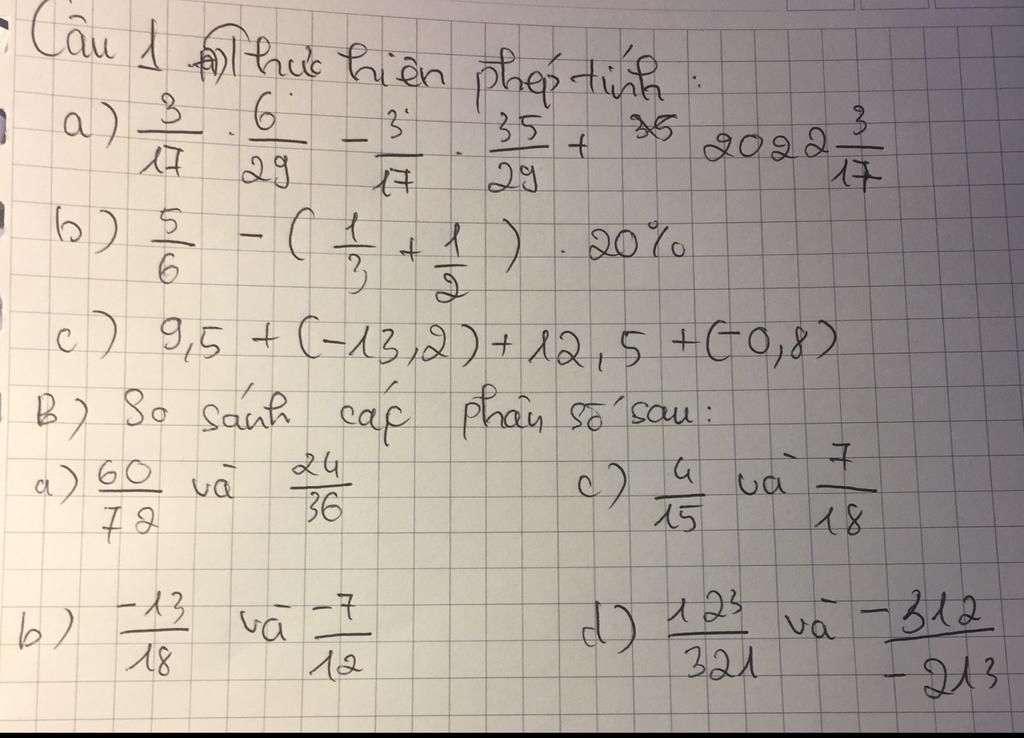 Câu 1 A) Thực hiện phép tính:
a) 3/17 . 6/29 - 3/17 . 35/29 + 35 2022 3/17
b) 5/6 - (1/3 + 1/2) . 20%
c) 9,5 + (-13,2) + 12,5 + (-0,8)
B) So sánh các phân số sau:
a) 60/72 và 24/36 c) 4/15 và 7/18
b) -13/18 và -7/12 d) 123/321 và -312/-213